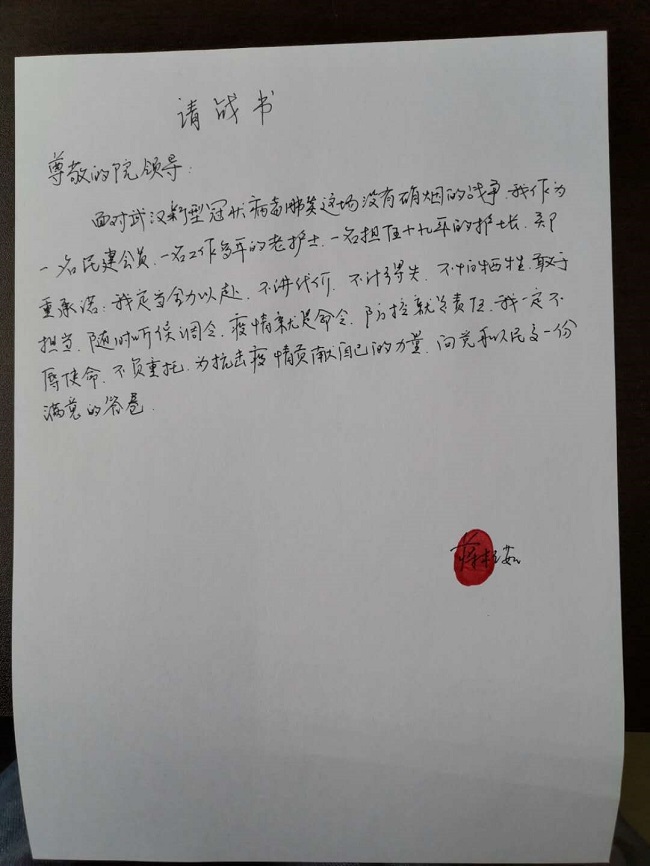 请战书
尊敬的院领导:
面对武汉新型冠状病毒肺炎这场没有硝烟的战争,我作为
一名民建会员、一名工作多年的老护士、一名担任十九年的护士长,郑
重承诺:我定当全力以赴,不讲代价、不计得失、不怕牺牲,敢于
担当,随时听候调令,疫情就是命令,防控就是责任,我一定不
辱使命、不负重托,为抗击疫情贡献自己的力量,向党和人民交一份
满意的答卷.
蒋 茹